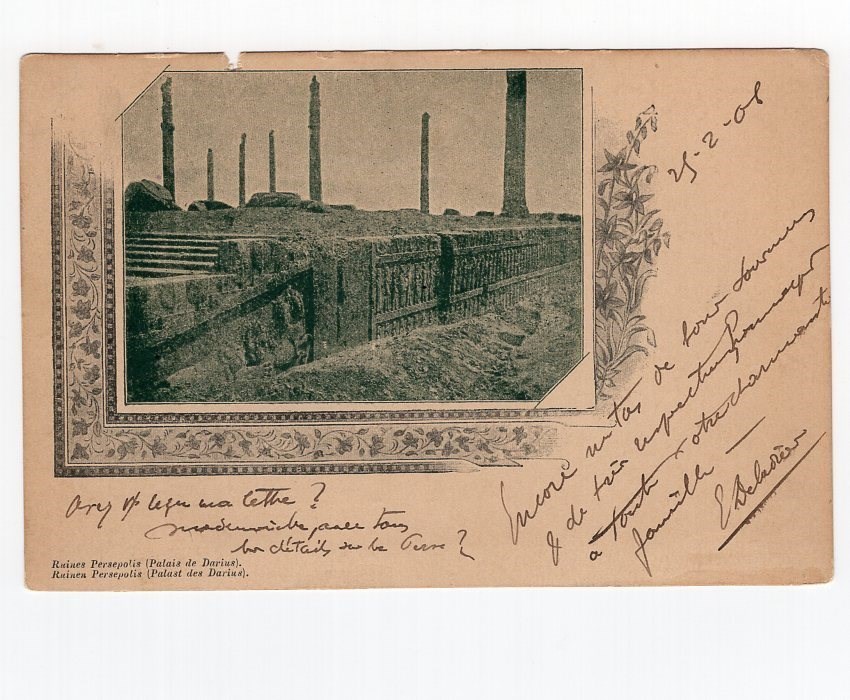 25-2-01
Encore un tas de bons souvenirs
& de très respectueux hommages
a toute votre charmante
famille —
E
Avez vs reçu ma lettre ?
avec tous
les détails sur la Perse ?
Ruines Persepolis (Palais de Darius).
Ruinen Persepolis (Palast des Darius).